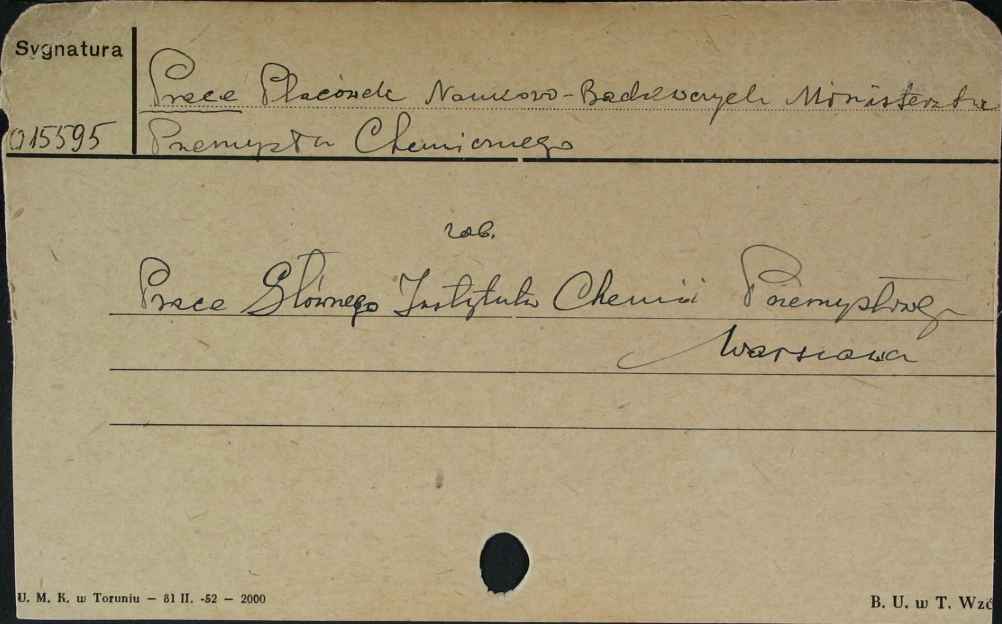 Sygnatura
Prace Placówek Naukowo-Badawczych Ministerstwa
015595
Przemysłu Chemicznego
zob.
Prace Głównego Instytutu Chemii Przemysłowej
Warszawa
U. M. K. w Toruniu — 81 II. -52 — 2000
B. U. w T. Wzó